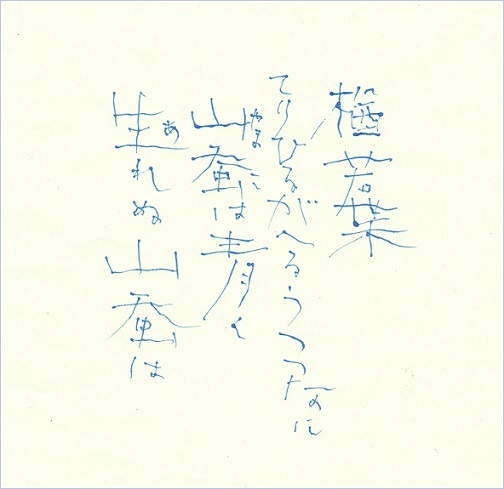 楢若葉
てりひるがへるうつつなに
山蚕は青く
生れぬ山蚕は